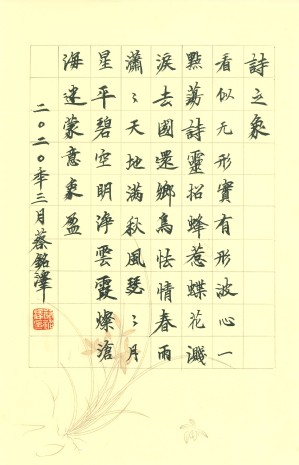 詩之象
看似无形實有形波心一
點蕩詩靈招蜂惹蝶花濺
淚去國還鄉鳥怯情春雨
瀟〻天地滿秋風瑟〻月
星平碧空明淨雲霞燦滄
海迷蒙意象盈
二〇二〇年三月蔡銘澤